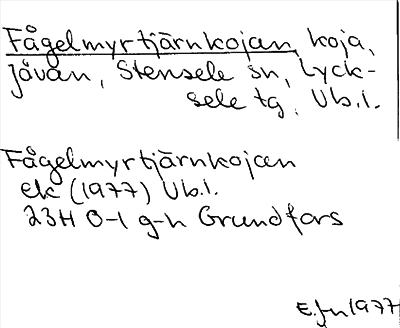 Fågelmyrtjärnkojan, koja,
Jåvan, Stensele sn, Lyck-
sele tg, Vb.l.
Fågelmyrtjärnkojan
ek (1977) Vb.l.
23H 0-1 g-h Grundfors
E.Jn 1977